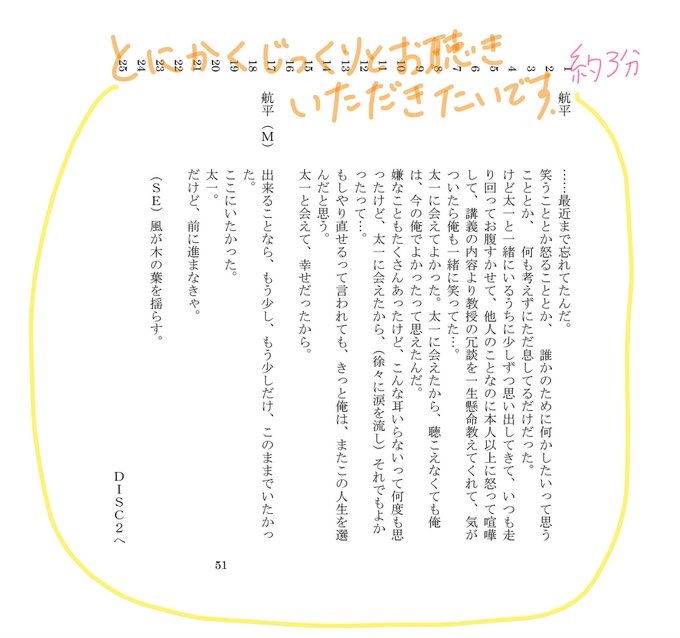 とにかくじっくりとお聴き
いただきたいです.
約3分
1
2
3
4
5
6
7
8
9
10
11
12
13
14
15
16
17
18
19
20
21
22
23
24
25
航平
……最近まで忘れてたんだ。
笑うこととか怒ることとか、誰かのために何かしたいって思う
こととか、何も考えずにただ息してるだけだった。
けど太一と一緒にいるうちに少しずつ思い出してきて、いつも走
り回ってお腹すかせて、他人のことなのに本人以上に怒って喧嘩
して、講義の内容より教授の冗談を一生懸命教えてくれて、気が
ついたら俺も一緒に笑ってた…。
太一に会えてよかった。太一に会えたから、聴こえなくても俺
は、今の俺でよかったって思えたんだ。
嫌なこともたくさんあったけど、こんな耳いらないって何度も思
ったけど、太一に会えたから、（徐々に涙を流し）それでもよか
ったって…。
もしやり直せるって言われても、きっと俺は、またこの人生を選
んだと思う。
太一と会えて、幸せだったから。
航平（M）
出来ることなら、もう少し、もう少しだけ、このままでいたかっ
た。
ここにいたかった。
太一。
だけど、前に進まなきゃ。
（SE）風が木の葉を揺らす。
DISC2へ
51